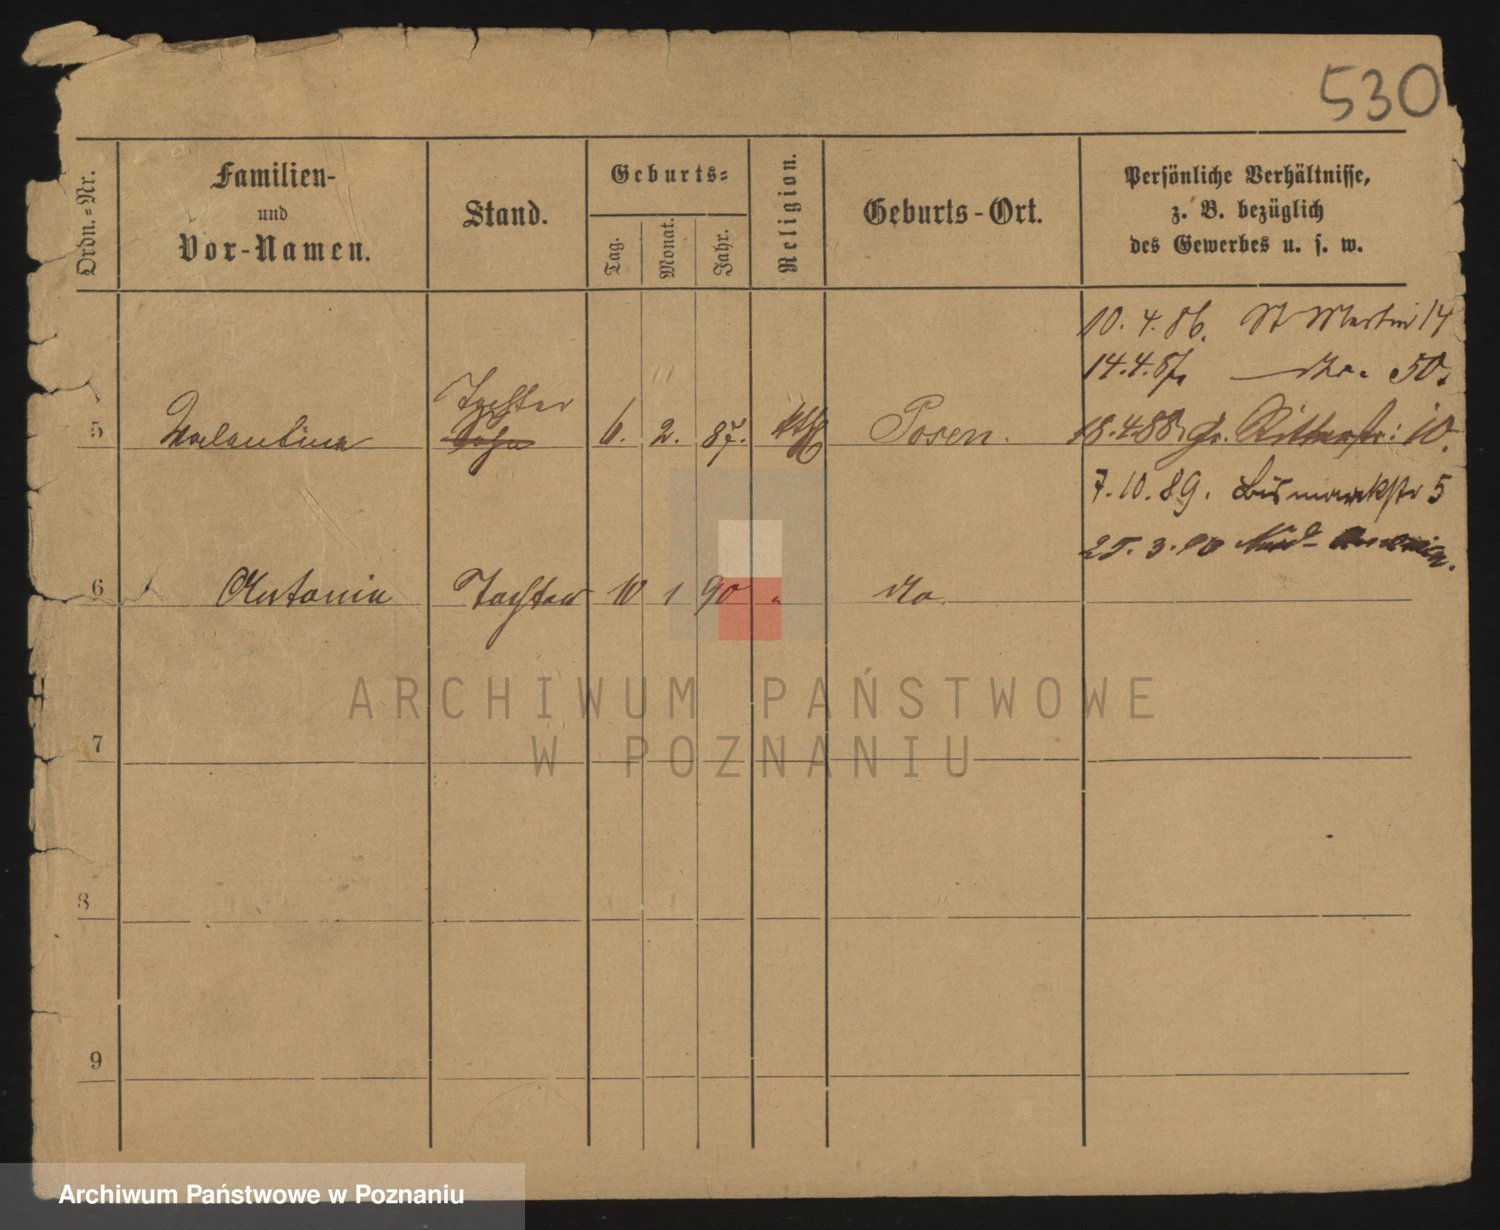 530
Ordn.=Nr.
Familien-
und
Vor-Namen.
Stand.
Geburts=
Tag.
Monat.
Jahr.
Religion.
Geburts-Ort.
Persönliche Verhältnisse,
z. B. bezüglich
des Gewerbes u. s. w.
10. 4. 86. St Martin 14
14. 4. 87. do. 50.
Tochter
5 Valentina Sohn 6. 2. 87. kth Posen. 18. 4. 88. gr. Ritterstr: 10.
7. 10. 89. Bismarckstr 5
25. 3. 90
6 Antonia Tochter 10 1 90 " do.
7
8
9
ARCHIWUM PAŃSTWOWE
W POZNANIU
Archiwum Państwowe w Poznaniu